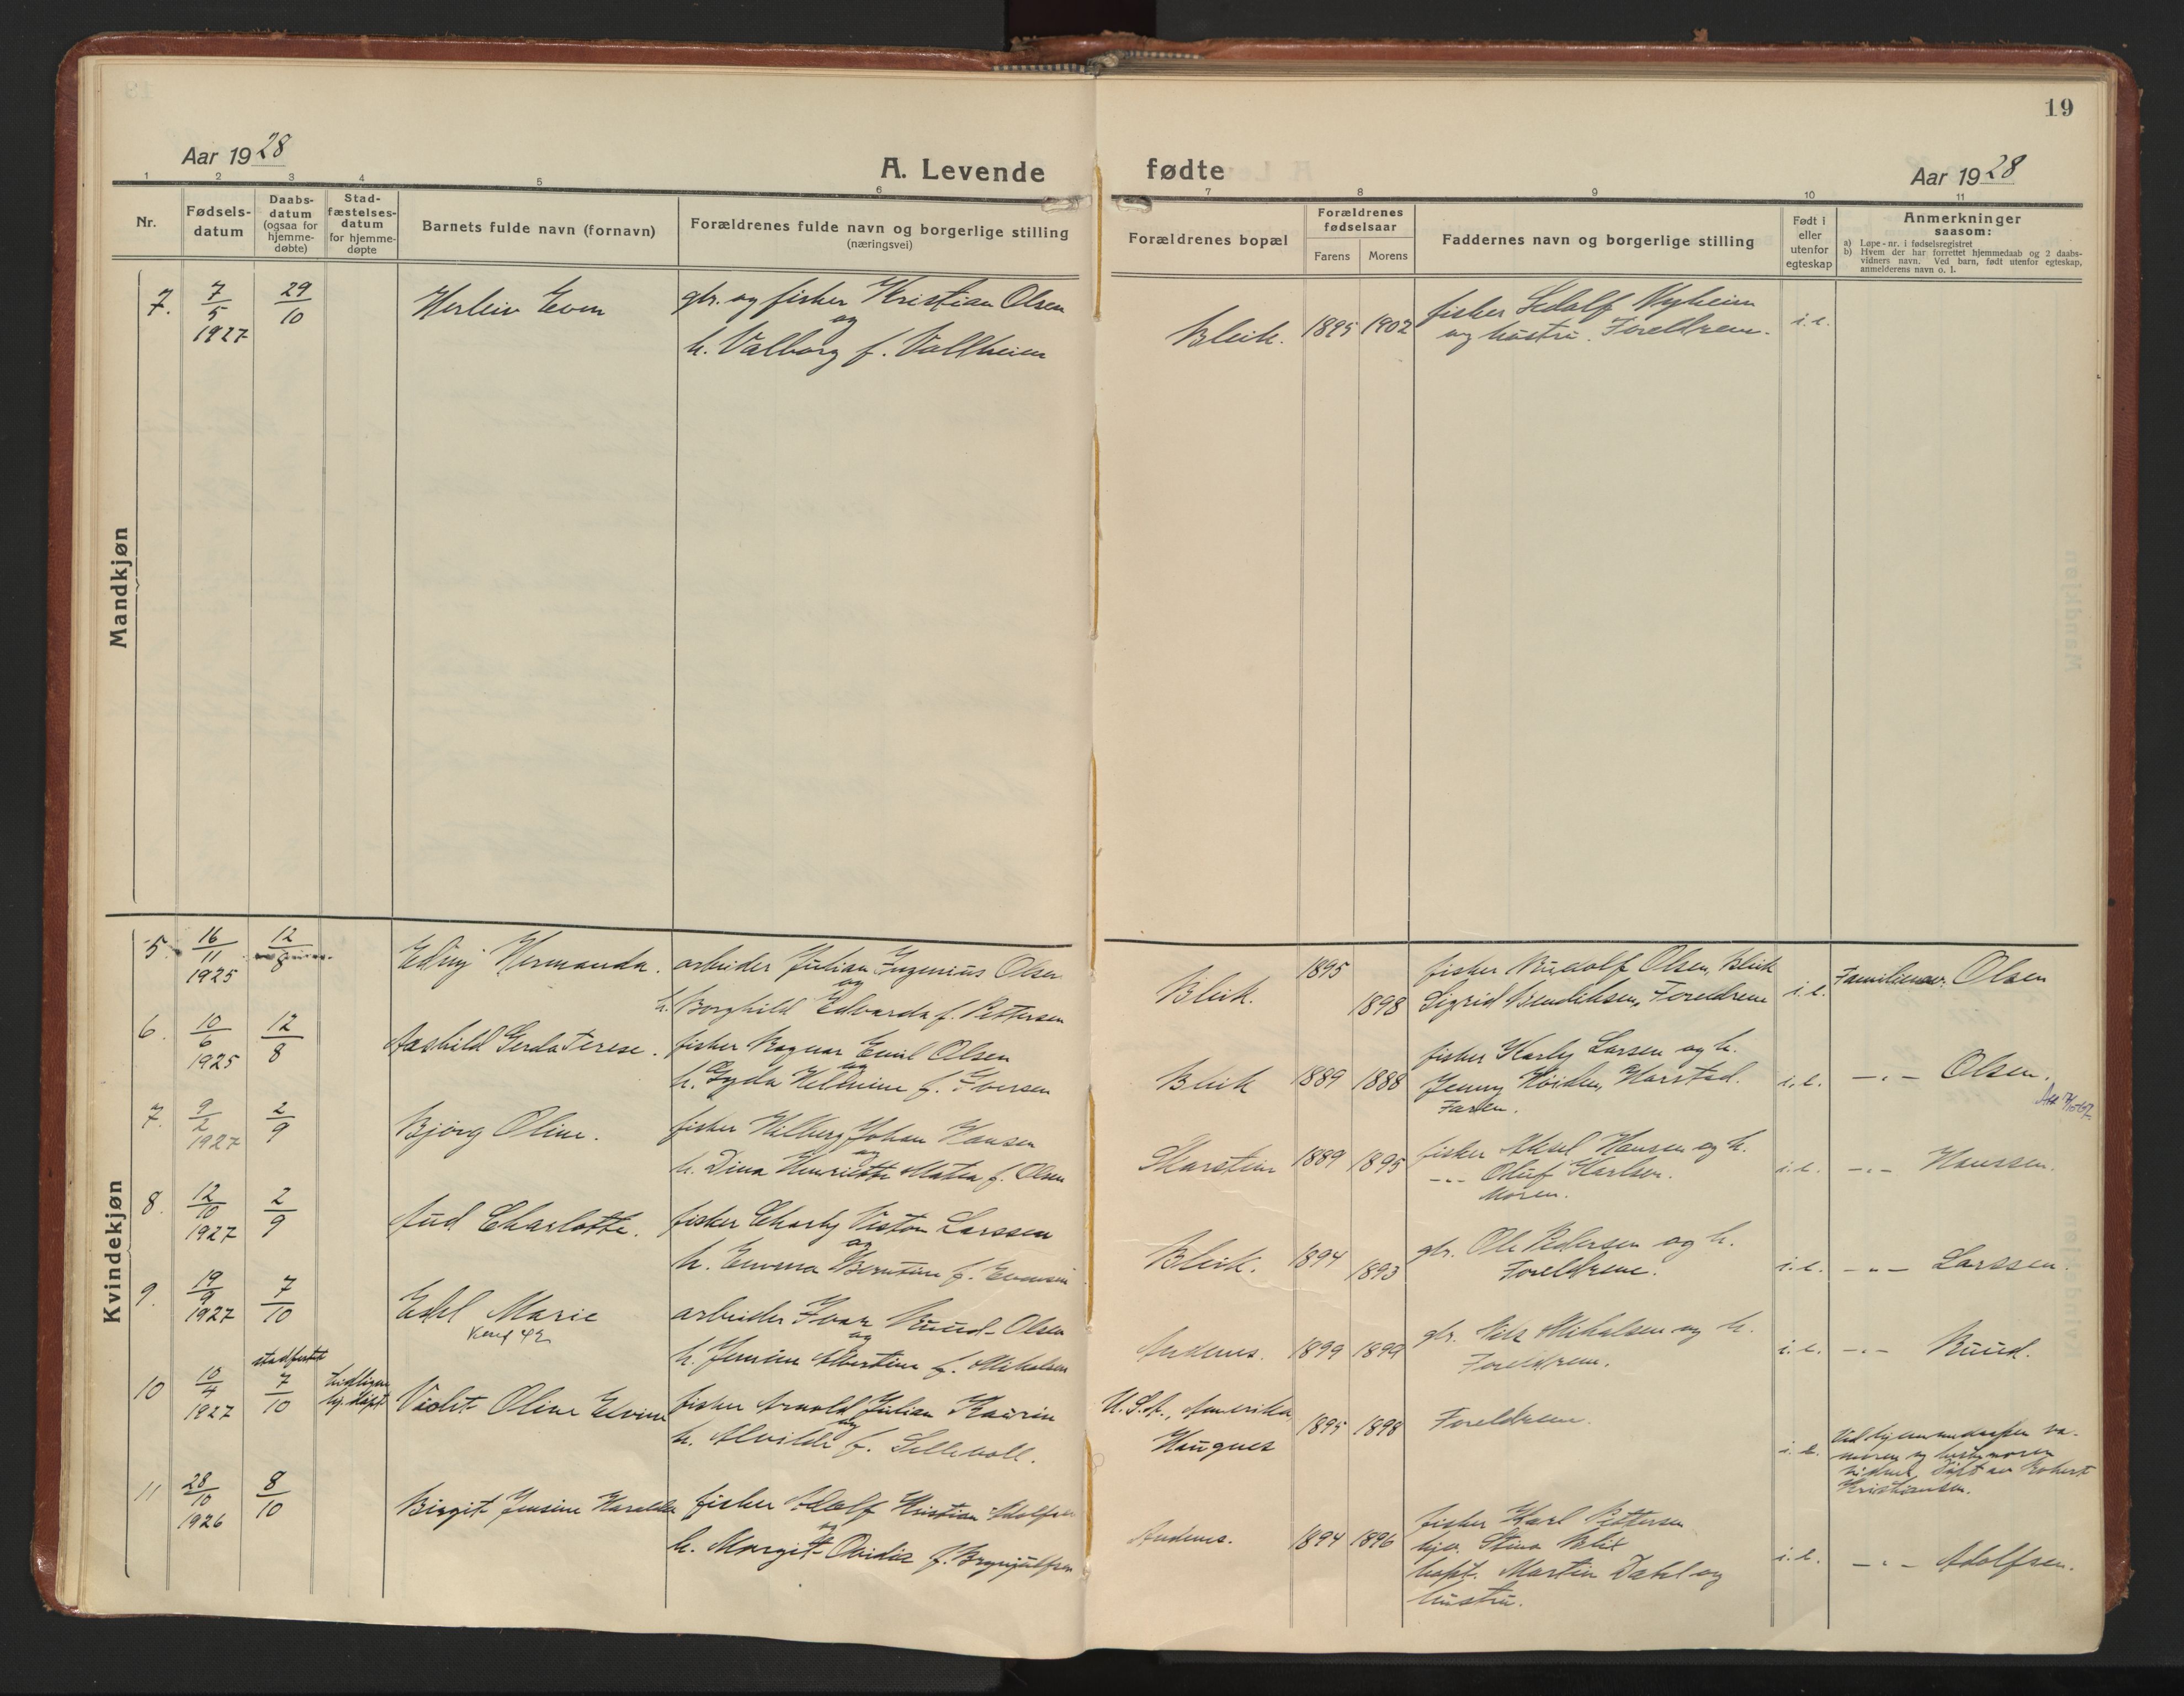 19
Aar 1928
A. Levende fødte
Aar 1928
1 2 3 4 5 6 7 8 9 10 11
Nr.
Fødsels-
datum
Daabs-
datum
(ogsaa for
hjemme-
døbte)
Stad-
fæstelses-
datum
for hjemme-
døpte
Barnets fulde navn (fornavn)
Forældrenes fulde navn og borgerlige stilling
(næringsvei)
Forældrenes bopæl
Forældrenes
fødselsaar
Farens Morens
Faddernes navn og borgerlige stilling
Født i
eller
utenfor
egteskap
Anmerkninger
saasom:
a) Løpe-nr. i fødselsregistret
b) Hvem der har forrettet hjemmedaab og 2 daabs-
vidners navn. Ved barn, født utenfor egteskap,
anmelderens navn o. l.
Mandkjøn
7. 7/5 1927 29/10
Herleiv Even
gbr. og fisker Kristian Olsen
og
h. Valborg f. Vollheim
Bleik. 1895 1902
fisker Nyheim
og hustru. Foreldrene.
i.e.
Kvindekjøn
5. 16/11 1925 12/8
Hermanda.
arbeider Julian Ingenius Olsen
og
h. Borghild Edvarda f. Pettersen
Bleik. 1895 1898
fisker Rudolf Olsen, Bleik
Sigrid Bendiksen, Foreldrene
i.e.
Familienavn Olsen
6. 10/6 1925 12/8
Aashild Gerda Terese.
fisker Ragnar Emil Olsen
og
h. Gyda f. Iversen
Bleik 1889 1888
fisker Karly Larsen og h.
Jenny Harstad.
Faren.
i.e.
-"- Olsen.
7. 9/2 1927 2/9
Bjørg Oline.
fisker Hilberg Johan Hansen
og
h. Dina Henriette Matea f. Olsen
Skarstein 1889 1895
fisker Aksel Hansen og h.
-"- Oluf Karlsen.
Moren.
i.e.
-"- Hanssen.
8. 12/10 1927 2/9
Aud Charlotte.
fisker Charly Viston Larssen
og
h. Emma Berntine f. Evensen
Bleik. 1894 1893
gbr. Ole Pedersen og h.
Foreldrene.
i.e.
-"- Larssen.
9. 19/9 1927 7/10
Edel Marie
Konf 42
arbeider Ivar Ruud-Olsen
og
h. Jensine Albertine f. Mikalsen
Andenes. 1899 1899
gbr. Nils Mikalsen og h.
Foreldrene.
i.e.
-"- Ruud.
10 10/4 1927 stadfestet 7/10
tidligere
hj. døpt
Violet Oline Elvine
fisker Arnold Julian Kaurin
og
h. Alvilde f. Sellevoll.
U.S.A., Amerika,
Haugnes
1895 1898
Foreldrene.
i.e.
Ved hjemmedaapen va-
moren og bestemoren
vidner, Døpt av Robert
Kristiansen.
11 28/10 1926 8/10
Birgit Jensine Haralda
fisker Adolf Kristian Adolfsen
og
h. Margit Ovidia f. Brynjulfsen
Andenes. 1894 1896
fisker Karl Pettersen
Stina Blix
kapt. Martin Dahl og
hustru.
i.e.
-"- Adolfsen.